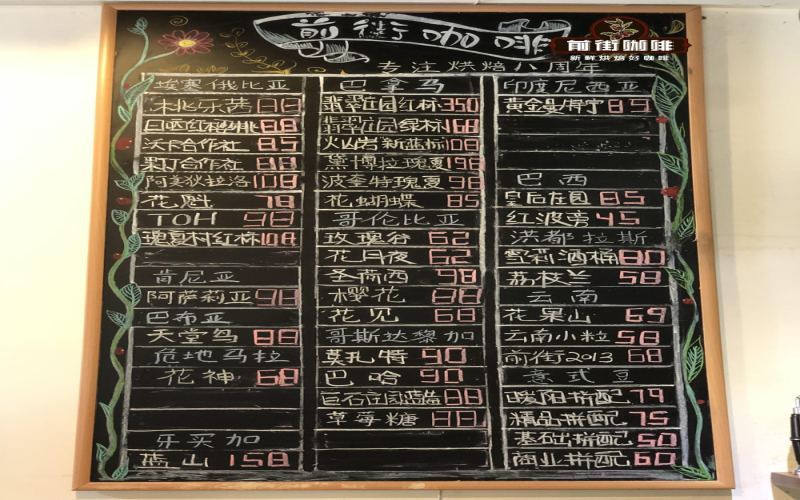 前街咖啡
前街咖啡
新鲜烘焙好咖啡
专注烘焙八周年
埃塞俄比亚
88
日晒红标 88
沃卡合作社 85
果丁合作社 88
阿美狄拉洛 108
花魁 78
TOH 98
瑰夏村红标 108
肯尼亚
阿萨莉亚 98
巴布亚
天堂鸟 88
危地马拉
花神 68
牙买加
蓝山 158
巴拿马
翡翠庄园红标 350
翡翠庄园绿标 168
火山岩新蓝标 108
黛博拉瑰夏 198
波奎特瑰夏 98
花蝴蝶 85
哥伦比亚
玫瑰谷 62
花月夜 62
圣荷西 98
樱花 88
花见 68
哥斯达黎加
莫扎特 90
巴哈 90
88
草莓糖 88
印度尼西亚
黄金曼特宁 89
巴西
皇后庄园 85
红波旁 45
洪都拉斯
雪莉酒桶 80
荔枝兰 58
云南
花果山 69
云南小粒 58
前街2013 68
意式豆
暖阳拼配 79
精品拼配 75
基础拼配 50
商业拼配 60